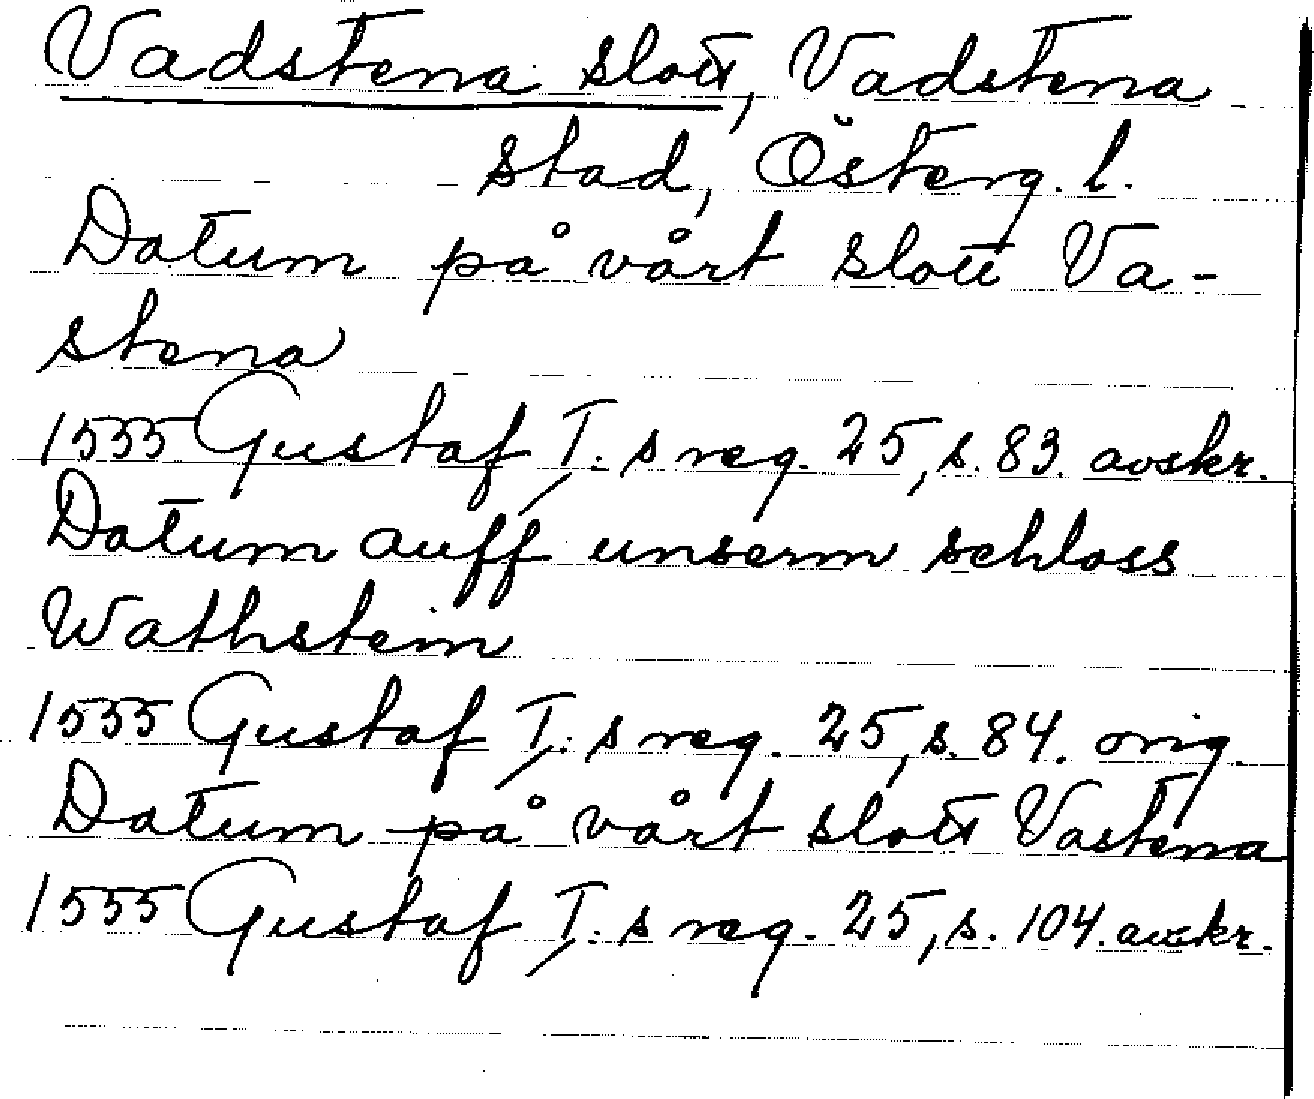 Vadstena slott, Vadstena
stad, Österg. l.
Datum på vårt slott Va-
stena
1555 Gustaf I:s reg. 25, s. 83. avskr.
Datum auff unserm schloss
Wathstein
1555 Gustaf I:s reg. 25, s. 84. orig.
Datum på vårt slott Vastena
1555 Gustaf I:s reg. 25, s. 104. avskr.